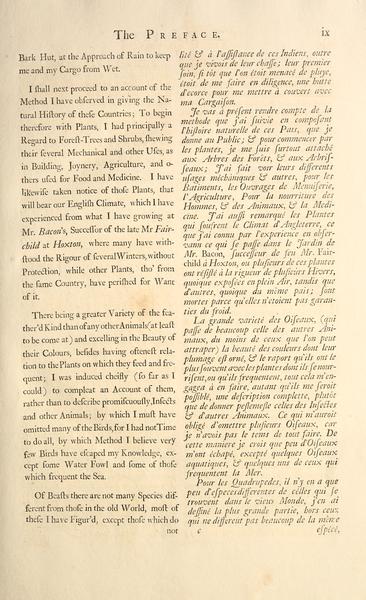 The PREFACE. ix
Bark Hut, at the Approach of Rain to keep
me and my Cargo from Wet.
I ſhall next proceed to an account of the
Method I have obſerved in giving the Na-
tural Hiſtory of theſe Countries; To begin
therefore with Plants, I had principally a
Regard to Foreſt-Trees and Shrubs, ſhewing
their ſeveral Mechanical and other Uſes, as
in Building, Joynery, Agriculture, and o-
thers uſed for Food and Medicine. I have
likewiſe taken notice of thoſe Plants, that
will bear our Engliſh Climate, which I have
experienced from what I have growing at
Mr. Bacon's, Succeſſor of the late Mr Fair-
child at Hoxton, where many have with-
ſtood the Rigour of ſeveral Winters, without
Protection, while other Plants, tho' from
the ſame Country, have periſhed for Want
of it.
There being a greater Variety of the fea-
ther'd Kind than of any other Animals (at leaſt
to be come at) and excelling in the Beauty of
their Colours, beſides having ofteneſt rela-
tion to the Plants on which they feed and fre-
quent; I was induced cheifly (ſo far as I
could) to compleat an Account of them,
rather than to deſcribe promiſcuouſly, Inſects
and other Animals; by which I muſt have
omitted many of the Birds, for I had not Time
to do all, by which Method I believe very
few Birds have eſcaped my Knowledge, ex-
cept ſome Water Fowl and ſome of thoſe
which frequent the Sea.
Of Beaſts there are not many Species dif-
ferent from thoſe in the old World, moſt of
theſe I have Figur'd, except thoſe which do
not
lité & à l'aſſiſtance de ces Indiens, outre
que je vivois de leur chaſſe; leur premier
ſoin, ſi tôt que l'on étoit menacé de pluye,
étoit de me faire en diligence, une hutte
d'écorce pour me mettre à couvert avec
ma Cargaiſon.
Je vas à préſent rendre compte de la
methode que j'ai ſuivie en compoſant
l'hiſtoire naturelle de ces Païs, que je
donne au Public; & pour commencer par
les plantes, je me ſuis ſurtout attaché
aux Arbres des Forêts, & aux Arbriſ-
ſeaux; J'ai fait voir leurs differents
uſages méchaniques & autres, pour les
Batiments, les Ouvrages de Menuiſerie,
l'Agriculture, Pour la nourriture des
Hommes, & des Animaux, & la Méde-
cine. J'ai auſſi remarqué les Plantes
qui ſoufrent le Climat d'Angleterre, ce
que j'ai connu par l'experience en obſer-
vant ce qui ſe paſſe dans le Jardin de
Mr. Bacon, ſucceſſeur de feu Mr. Fair-
child à Hoxton, où pluſieurs de ces plantes
ont réſiſté à la rigueur de pluſieurs Hivers,
quoique expoſées en plein Air, tandis que
d'autres, quoique du même païs; ſont
mortes parce qu'elles n'etoient pas garan-
ties du froid.
La grande varieté des Oiſeaux, (qui
paſſe de beaucoup celle des autres Ani-
maux, du moins de ceux que l'on peut
attraper) la beauté des couleurs dont leur
plumage eſt orné, & le raport qu'ils ont le
plus ſouvent avec les plantes dont ils ſe nour-
riſent, ou qu'ils frequentent, tout cela m'en-
gagea à en faire, autant qu'ille me ſeroit
poſſible, une deſcription complette, plutôt
que de donner peſlemeſle celles des Inſectes
& d'autres Animaux. Ce qui m'auroit
obligé d'omettre pluſieurs Oiſeaux, car
je n'avois pas le tems de tout faire. De
cette maniere je crois que peu d'Oiſeaux
m'ont échapé, excepté quelques Oiſeaux
aquatiques, & quelques uns de ceux qui
frequentent la Mer.
Pour les Quadrupedes, il n'y en a que
peu d'eſpeces differentes de celles qui ſe
trouvent dans le vieux Monde, j'en ai
deſſiné la plus grande partie, hors ceux
qui ne different pas beaucoup de la même
c eſpécé,